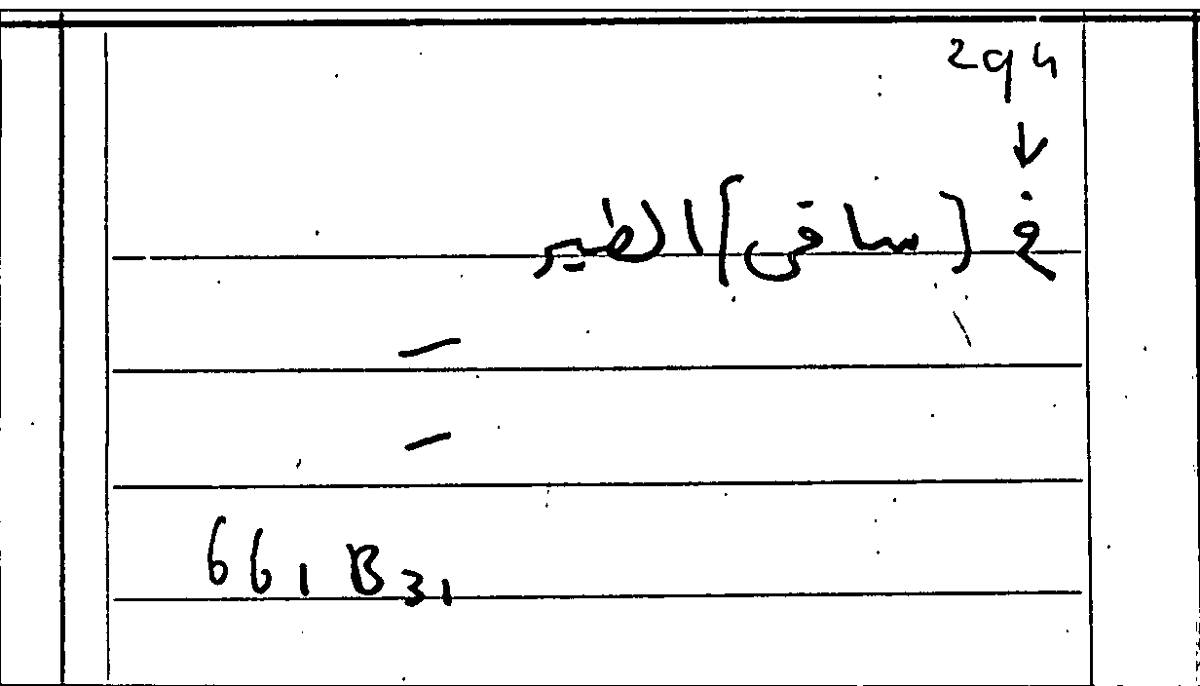 294
↓
في [ساقي] الطير
—
—
661 B31